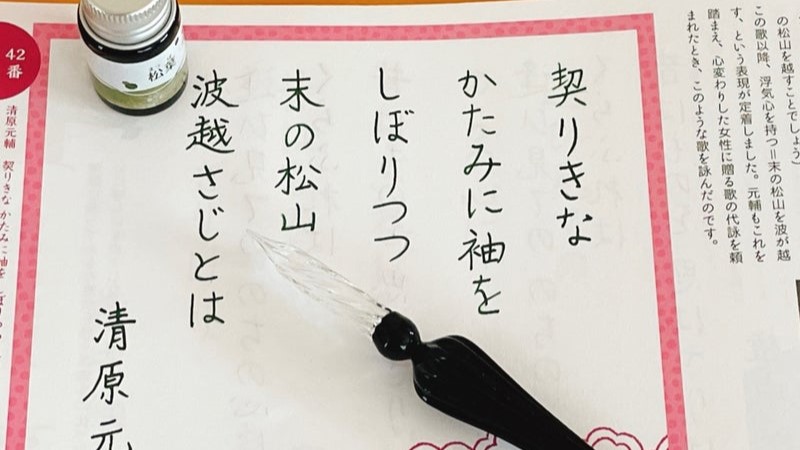 の松山を越すことでしょう）
この歌以降、浮気心を持つ＝末の松山を波が越
す、という表現が定着しました。元輔もこれを
踏まえ、心変わりした女性に贈る歌の代詠を頼
まれたとき、このような歌を詠んだのです。
契りきな
かたみに袖を
しぼりつつ
末の松山
波越さじとは
清原元
42
番
清原元輔 契りきな かたみに袖を しぼり